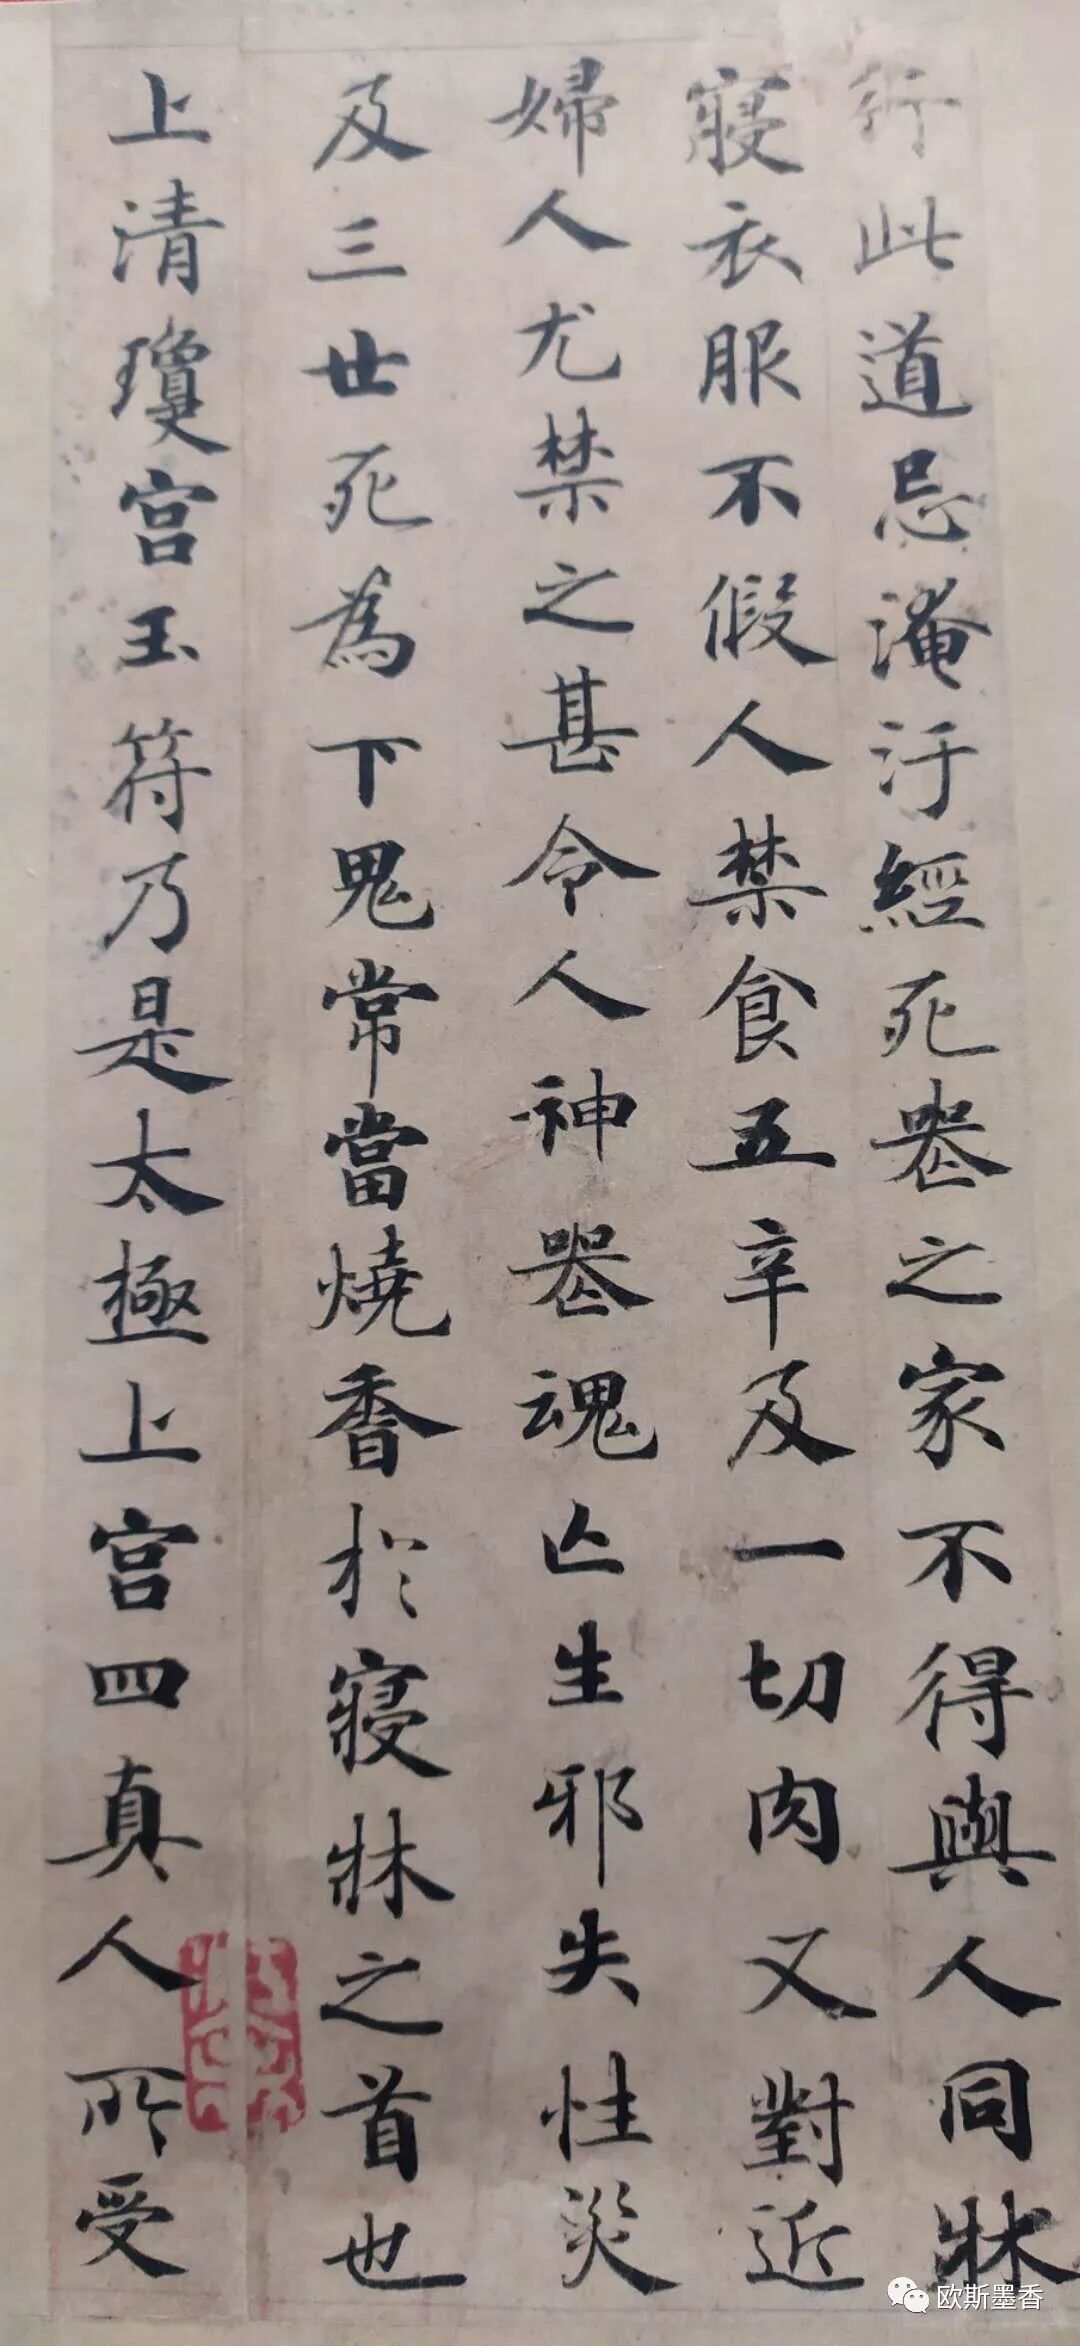 行此道忌淹汙經死喪之家不得與人同牀
寢衣服不假人禁食五辛及一切肉又對近
婦人尤禁之甚令人神喪魂亡生邪失性災
及三世死為下鬼常當燒香於寢牀之首也
上清瓊宮玉符乃是太極上宮四真人所受
欧斯墨香